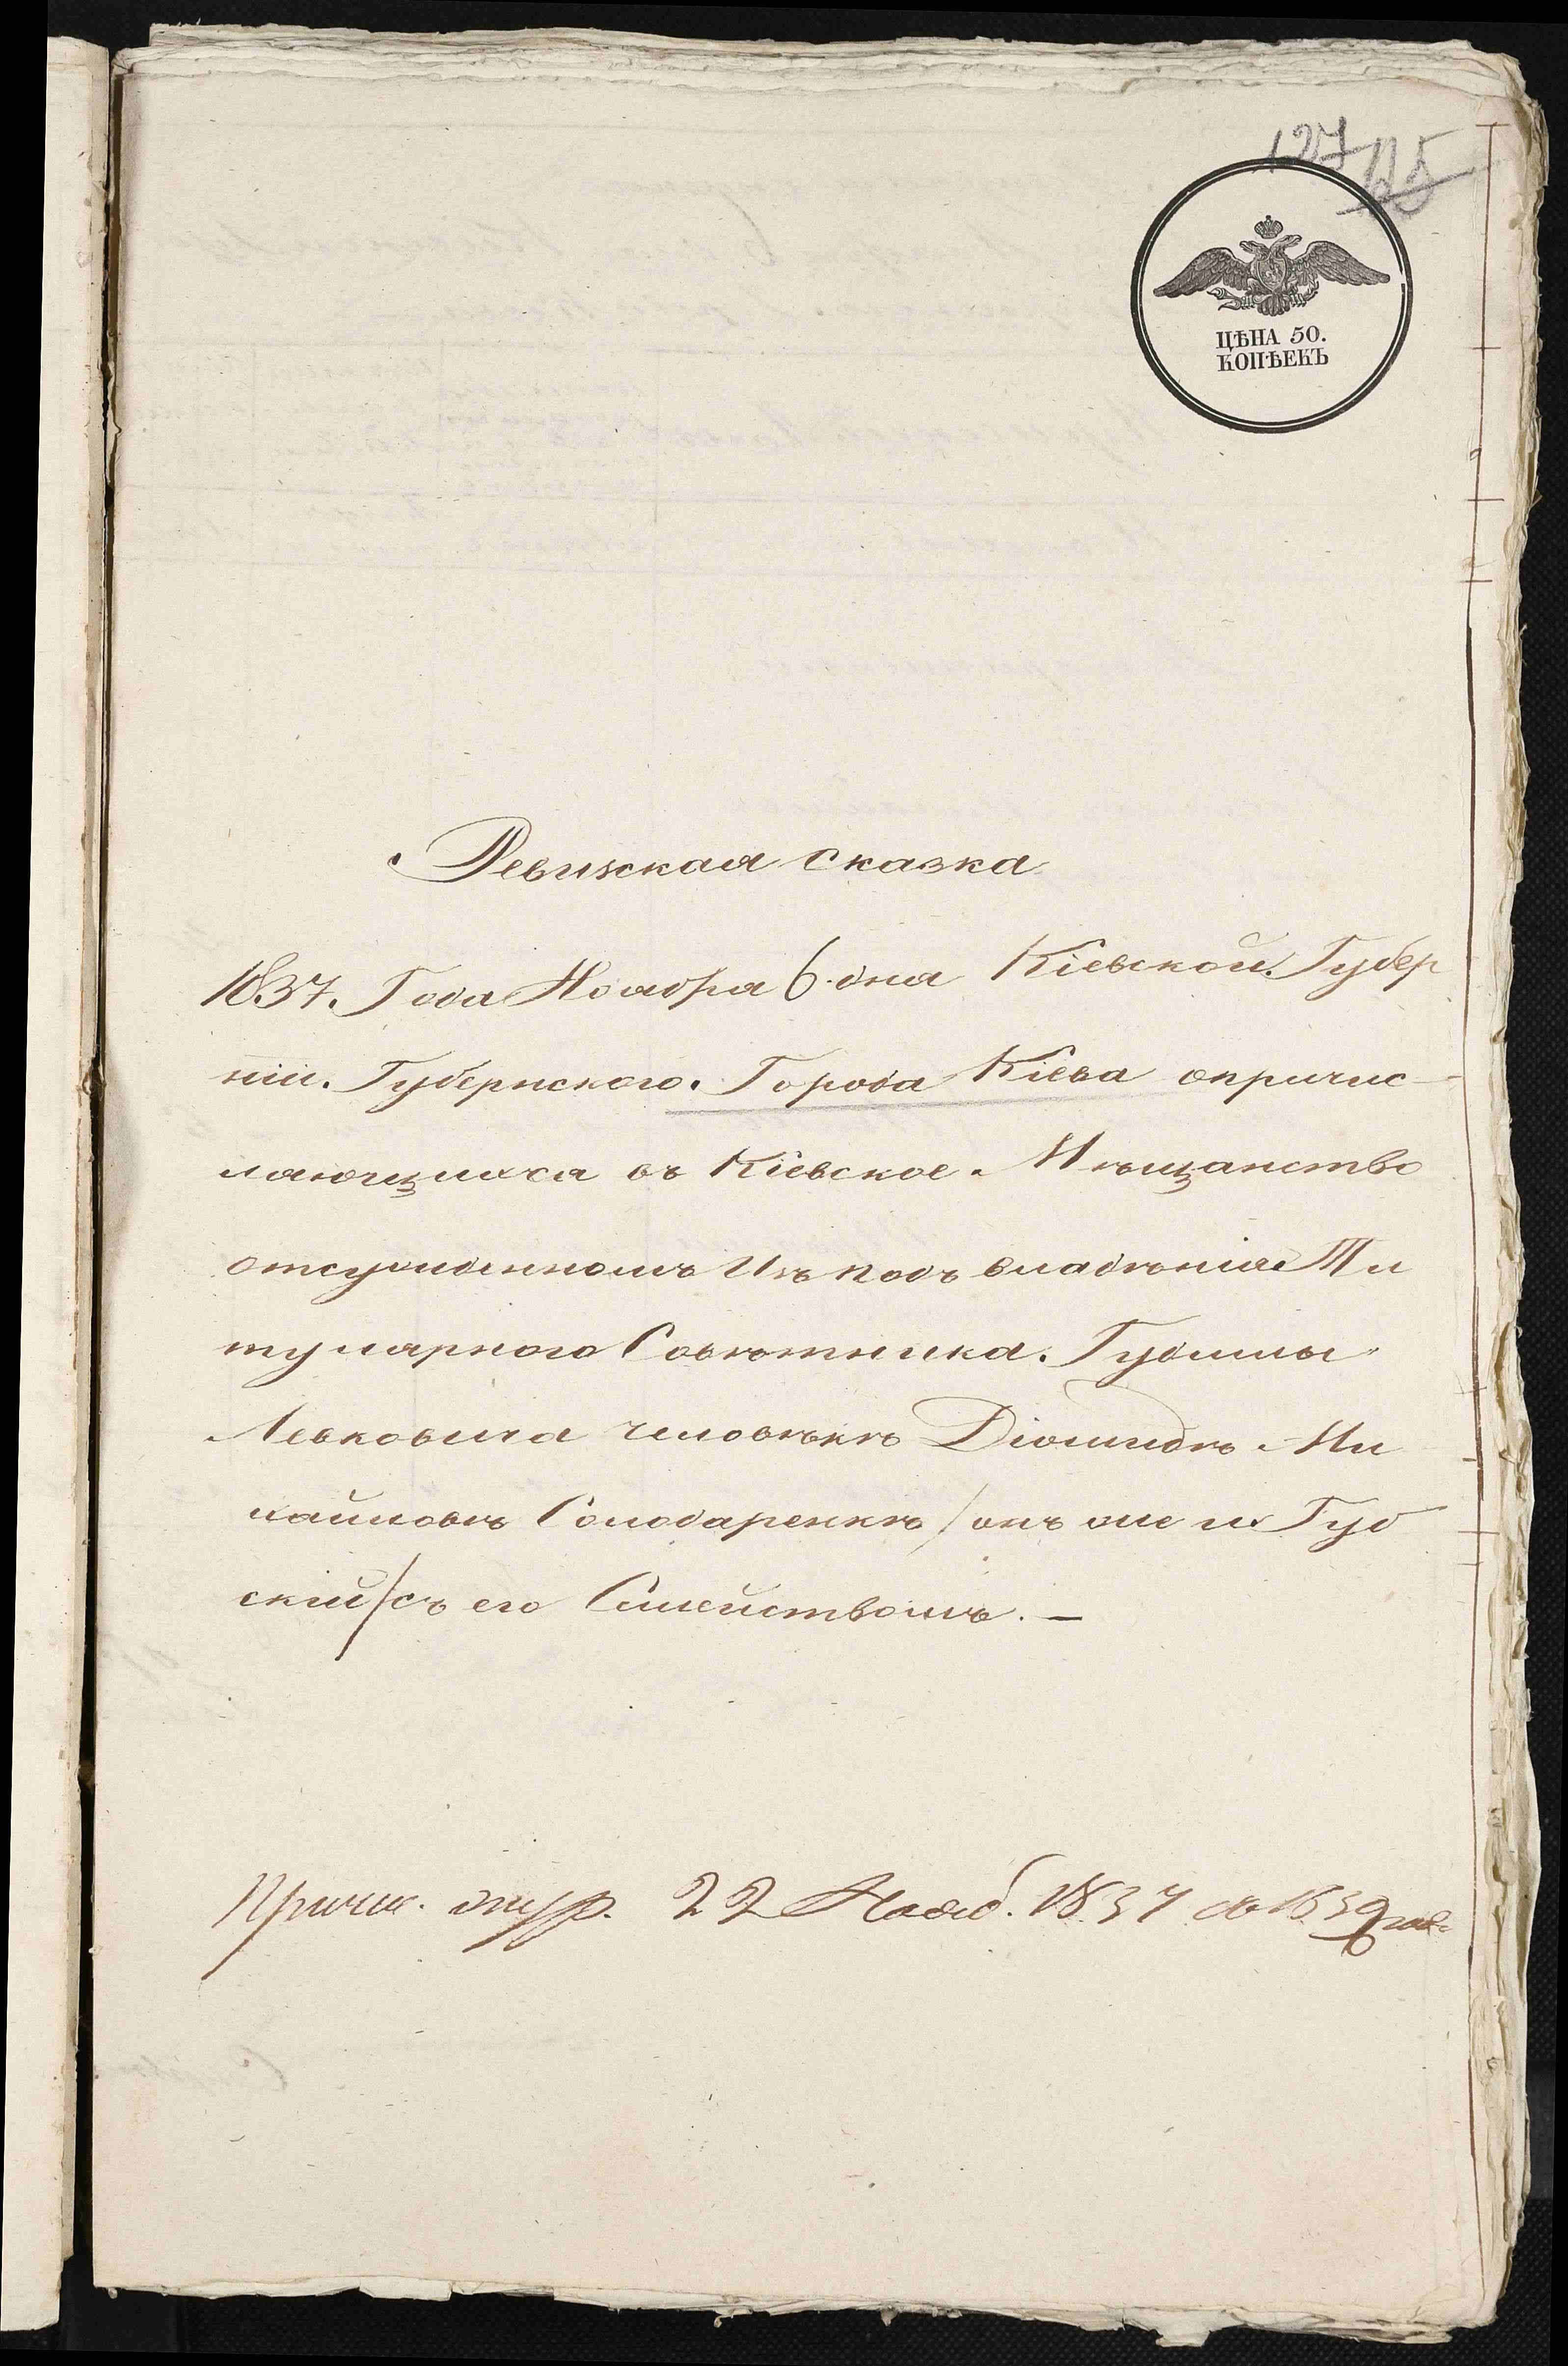 127 125
ЦѢНА 50.
КОПѢЕКЪ
Ревижская сказка
1837. Года Ноября 6. дня Кіевской. Губер
ніи. Губернского. Города Кіева опричис
ляющихся въ Кіевское. Мѣщанство
отсужденномъ Изъ подъ владѣнія Ти
тулярного Совѣтника. Гудимы
Левковича человѣкѣ Діомидѣ Ми
хайловѣ Солодаренкѣ / онъ же и Губ
скій / съ его Семействомъ. —
Причис. 22 Нояб. 1837 съ 1839